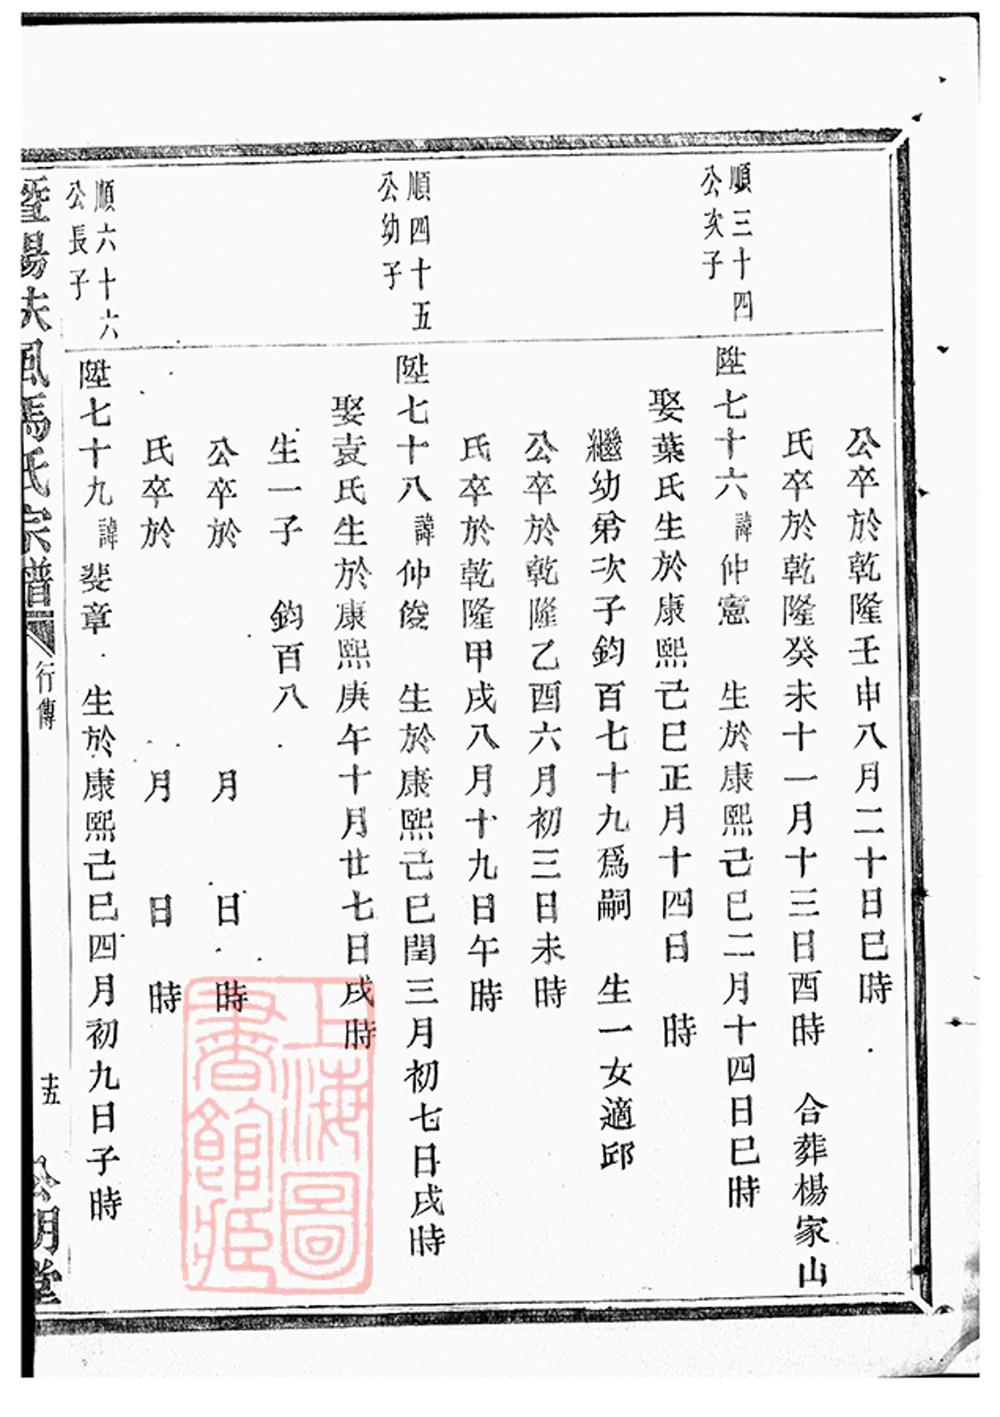 公卒於乾隆壬申八月二十日巳時
氏卒於乾隆癸未十一月十三日酉時 合葬楊家山
順三十四
公次子
陞七十六諱仲憲 生於康熙己巳二月十四日巳時
娶葉氏生於康熙己巳正月十四日 時
繼幼弟次子鈞百七十九爲嗣 生一女適邱
公卒於乾隆乙酉六月初三日未時
氏卒於乾隆甲戌八月十九日午時
順四十五
公幼子
陞七十八諱仲俊 生於康熙己巳閏三月初七日戌時
娶袁氏生於康熙庚午十月廿七日戌時
生一子 鈞百八
公卒於 月 日 時
氏卒於 月 日 時
順六十六
公長子
陞七十九諱斐章 生於康熙己巳四月初九日子時
暨陽扶風馬氏宗譜
行傳
十五
公明堂
上海圖
書館藏